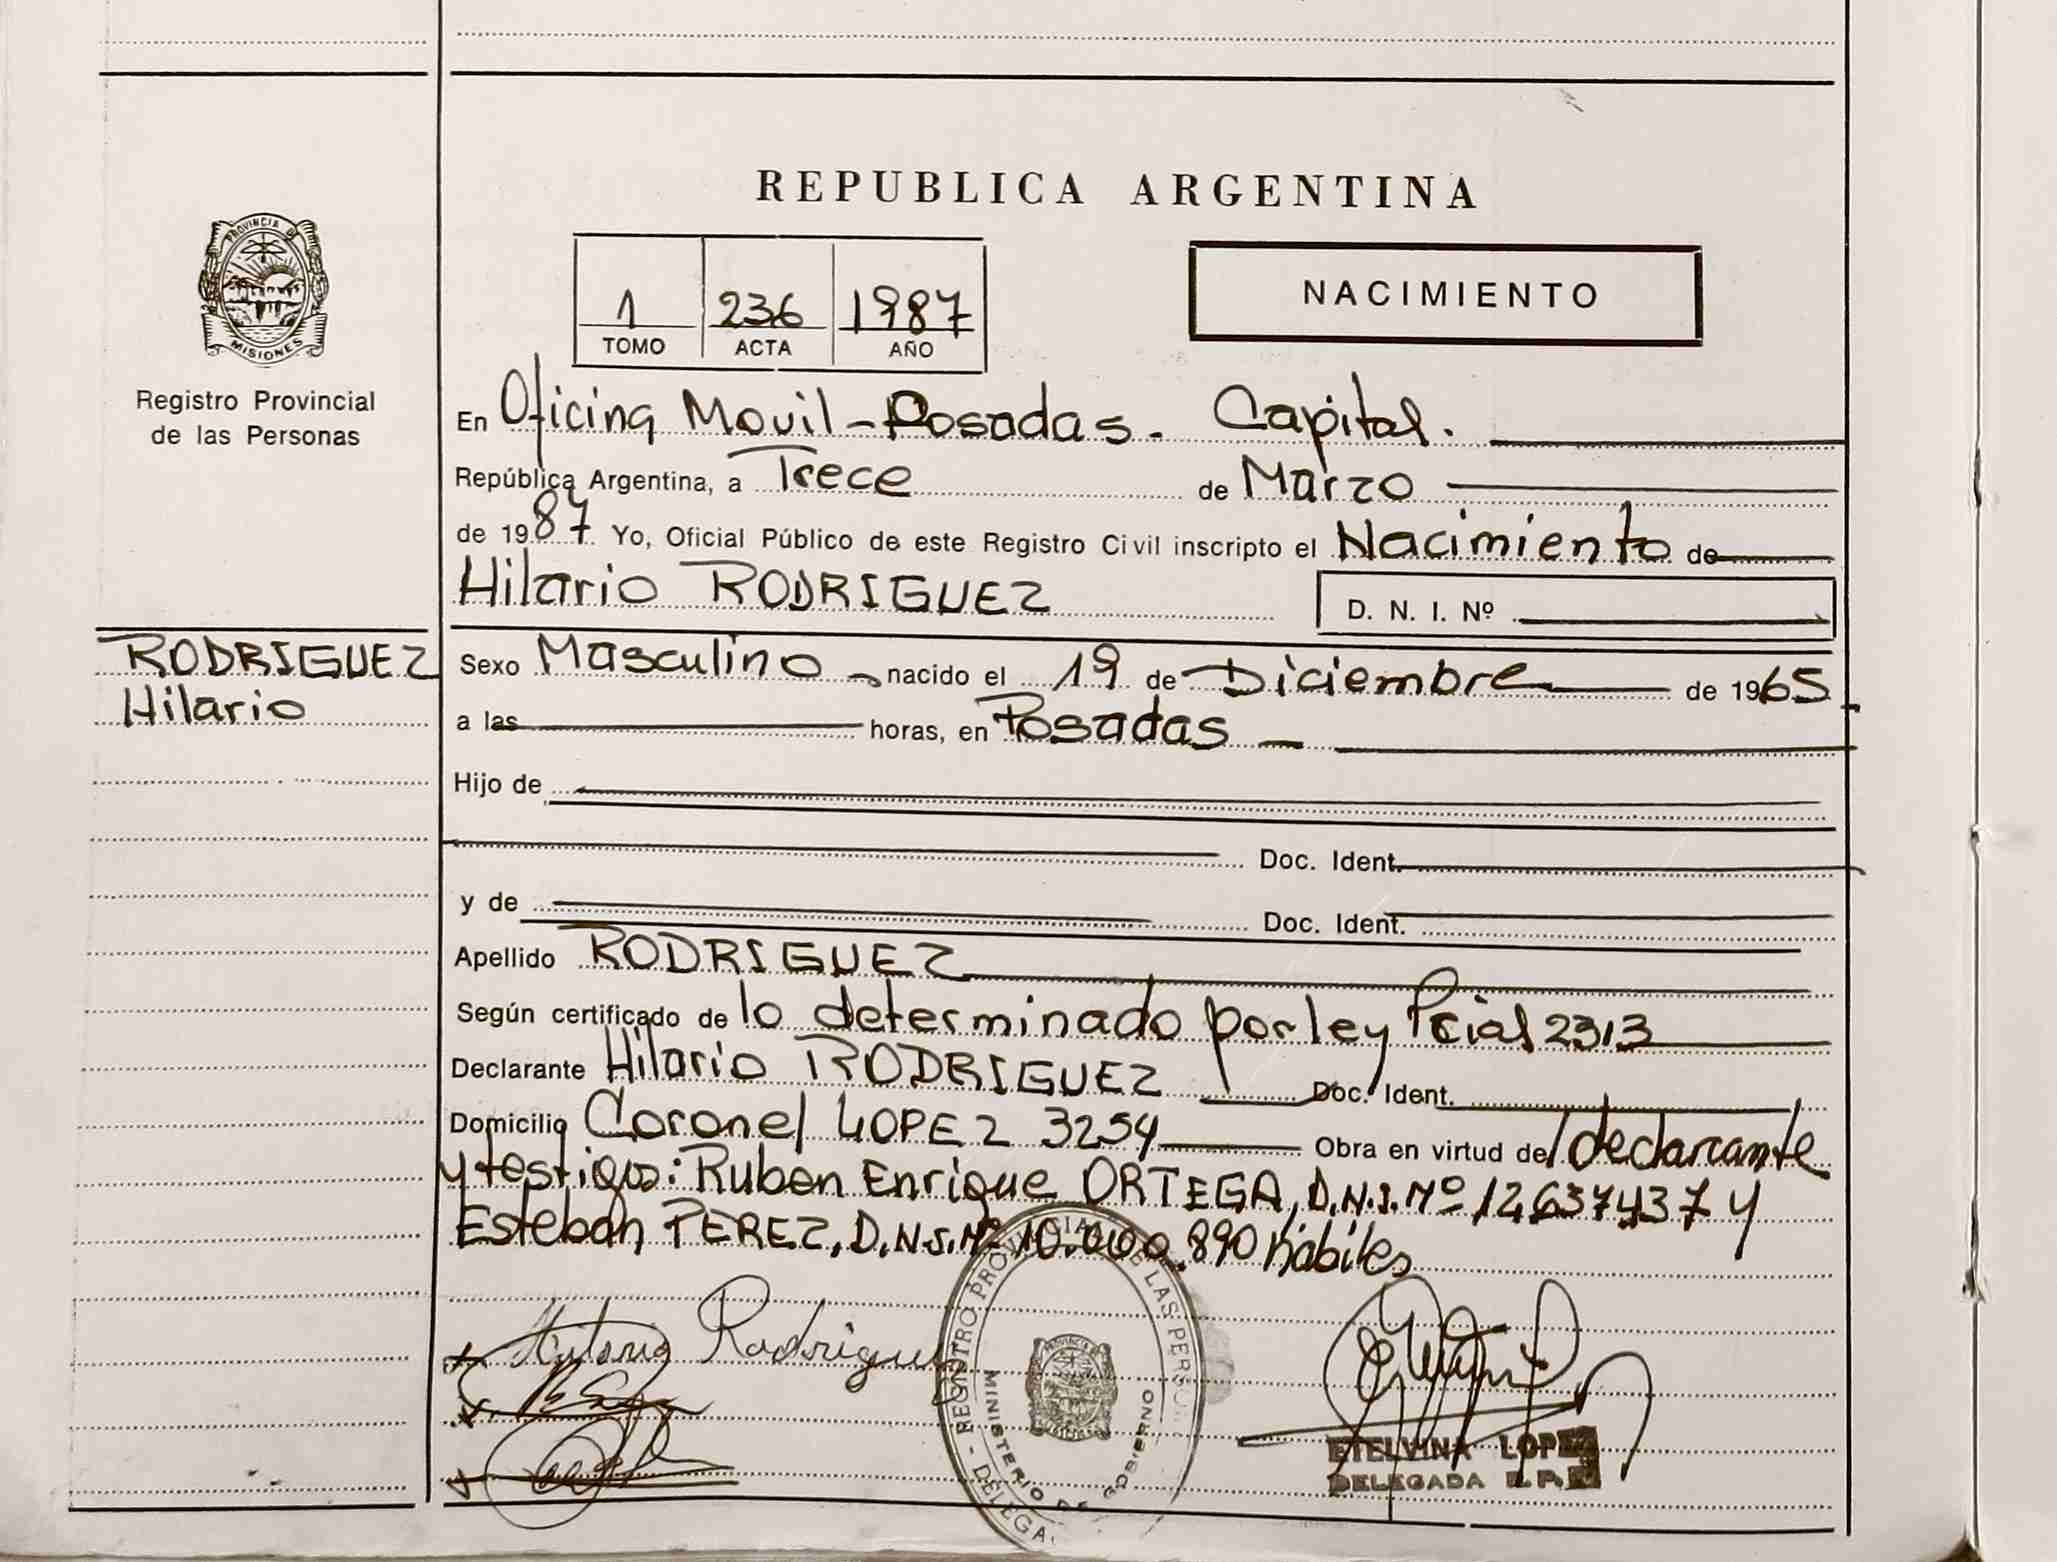 REPUBLICA ARGENTINA
PROVINCIA D
MISIONES
Registro Provincial
de las Personas
1 236 1987
TOMO ACTA AÑO
NACIMIENTO
En Oficina Movil - Posadas. Capital.
República Argentina, a Trece de Marzo
de 1987. Yo, Oficial Público de este Registro Civil inscripto el Nacimiento de
Hilario RODRIGUEZ D. N. I. Nº
RODRIGUEZ
Hilario
Sexo Masculino nacido el 19 de Diciembre de 1965
a las horas, en Posadas
Hijo de
Doc. Ident.
y de Doc. Ident.
Apellido RODRIGUEZ
Según certificado de lo determinado por ley Pcial 2313
Declarante Hilario RODRIGUEZ Doc. Ident.
Domicilio Coronel LOPEZ 3254 Obra en virtud del declarante
y testigos: Ruben Enrique ORTEGA, D.N.I. Nº 12637437 y
Esteban PEREZ, D.N.I. Nº 10.000.890 hábiles
Rodriguez
REGISTRO PROVINCIAL DE LAS PERSON
MINISTERIO DE GOBIERNO
- DELEGA
ETELVINA LOPEZ
DELEGADA R.P.